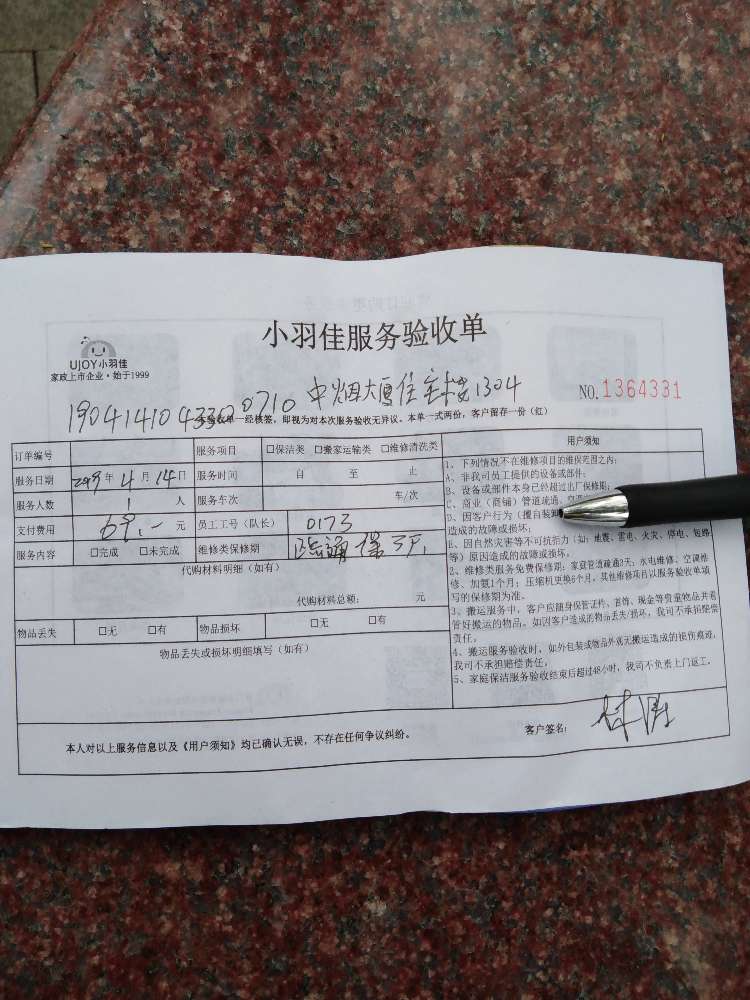 小羽佳服务验收单
UJOY小羽佳
家政上市企业·始于1999
中烟大厦住宅楼1304
NO.1364331
验收单一经核签,即视为对本次服务验收无异议。本单一式两份,客户留存一份(红)
订单编号 服务项目 □保洁类 □搬家运输类 □维修清洗类
服务日期 2019年4月14日 服务时间 自 至 止
服务人数 1 人 服务车次 车/次
支付费用 69.- 元 员工工号(队长) 0173
服务内容 □完成 □未完成 维修类保修期
代购材料明细(如有)
代购材料总额: 元
物品丢失 □无 □有 物品损坏 □无 □有
物品丢失或损坏明细填写(如有)
用户须知
1、下列情况不在维修项目的维保范围之内:
A、非我司员工提供的设备或部件;
B、设备或部件本身已经超过出厂保修期;
C、商业(商铺)管道疏通、空调
D、因客户行为(擅自装卸
造成的故障或损坏;
E、因自然灾害等不可抗力(如:地震、雷电、火灾、停电、短路
等)原因造成的故障或损坏。
2、维修类服务免费保修期:家庭管道疏通2天;水电维修、空调维
修、加氨1个月;压缩机更换6个月,其他维修项目以服务验收单填
写的保修期为准。
3、搬运服务中,客户应随身保管证件、首饰、现金等贵重物品并看
管好搬运的物品。如因客户造成的物品丢失/损坏,我司不承担赔偿
责任。
4、搬运服务验收时,如外包装或物品外观无搬运造成的损伤痕迹,
我司不承担赔偿责任。
5、家庭保洁服务验收结束后超过48小时,我司不负责上门返工。
本人对以上服务信息以及《用户须知》均已确认无误,不存在任何争议纠纷。
客户签名: